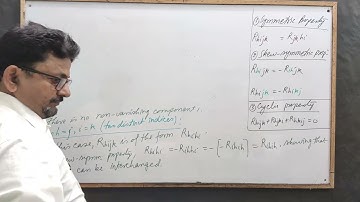 ① Symmetric Property
Rhijk = Rjkhi
② Skew-symmetric prop.
Rhijk = -Rihjk
Rhijk = -Rhikj
③ Cyclic property
Rhijk + Rhjki + Rhkij = 0
there is no non-vanishing component.
h = j, i = k (two distinct indices).
this case, Rhijk is of the form Rhihi
symm property, Rhihi = -Rihhi = -[-Rihih] = Rihih, showing that
can be interchanged.